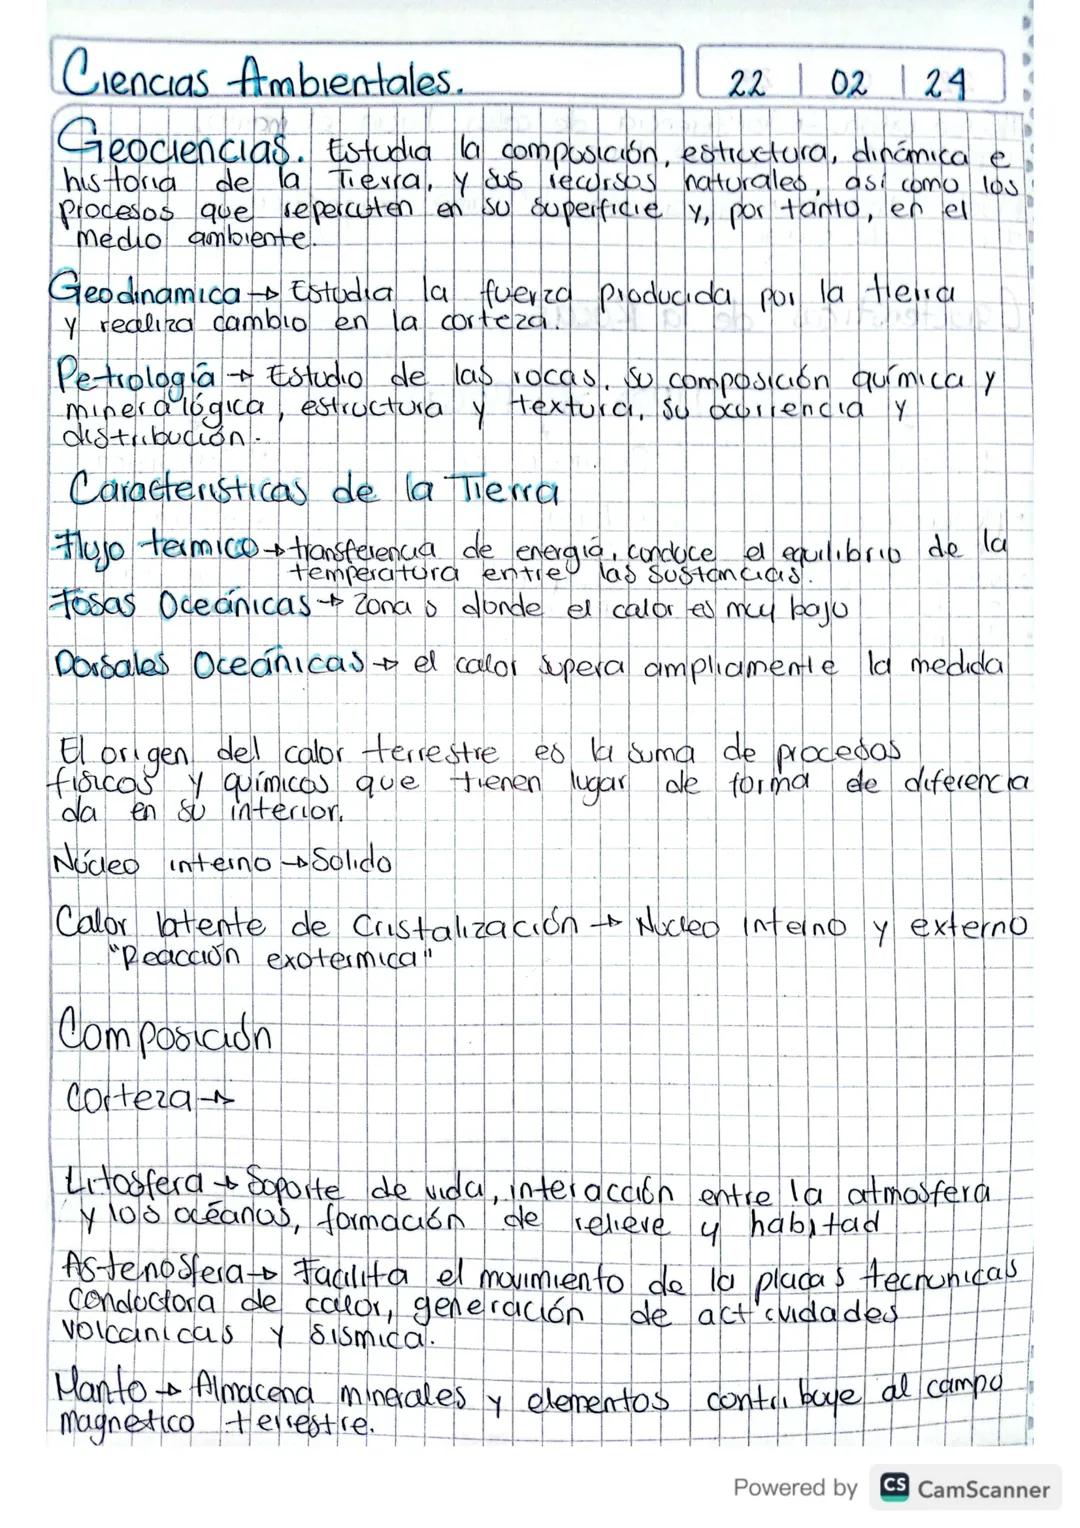 Ciencias Ambientales.
22 | 02 | 24
Geociencias. Estudia la composición, estructura, dinámica e
historia de la Tierra, y sus recursos naturales, asi como los
procesos que repercuten en su superficie y, por tanto, en el
medio ambiente.
Geodinamica → Estudia la fuerza producida por la tierra
y realiza cambio en la corteza.
Petrologia → Estudio de las rocas, su composición química y
mineralógica, estructura y textura, su ocurrencia y
distribución.
Caracteristicas de la Tierra
Flujo termico → transferencia de energia, conduce el equilibrio de la
temperatura entre las sustancias.
Fosas Oceánicas → Zonas donde el calor es muy bajo
Dorsales Oceánicas → el calor supera ampliamente la medida
El origen del calor terrestre es la suma de procesos
fisicos y químicos que tienen lugar de forma de diferencia
da en su interior.
Núcleo interno → Solido
Calor latente de Cristalización → Nucleo Interno y externo
"Reacción exotermica"
Composición
Corteza →
Litosfera → Soporte de vida, interacción entre la atmosfera
y los océanos, formación de relieve y habitad
Astenosfera → Facilita el movimiento de la placas tecnonicas
conductora de calor, generación de actividades
volcanicas y sismica.
Manto → Almacena minerales y elementos contribuye al campo
magnetico terrestre.
Powered by CS CamScanner